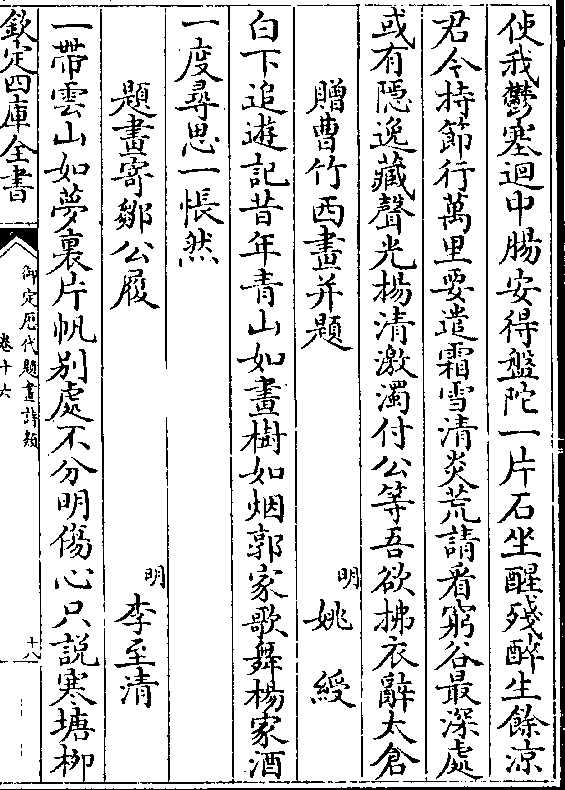 使我鬱塞迴中腸安得盤陀一片石坐醒殘醉生餘涼
君今持節行萬里要遣霜雪清炎荒請看窮谷最深處
或有隠逸藏聲光揚清激濁付公等吾欲拂衣辭太倉
贈曹竹西畫并題 明 姚綬
白下追遊記昔年青山如畫樹如烟郭家歌舞楊家酒
一度尋思一悵然
題畫寄鄒公履 明 李至清
一帶雲山如夢裏片帆别處不分明傷心只說寒塘栁
欽定四庫全書
御定歴代題畫詩類
卷十六
十八